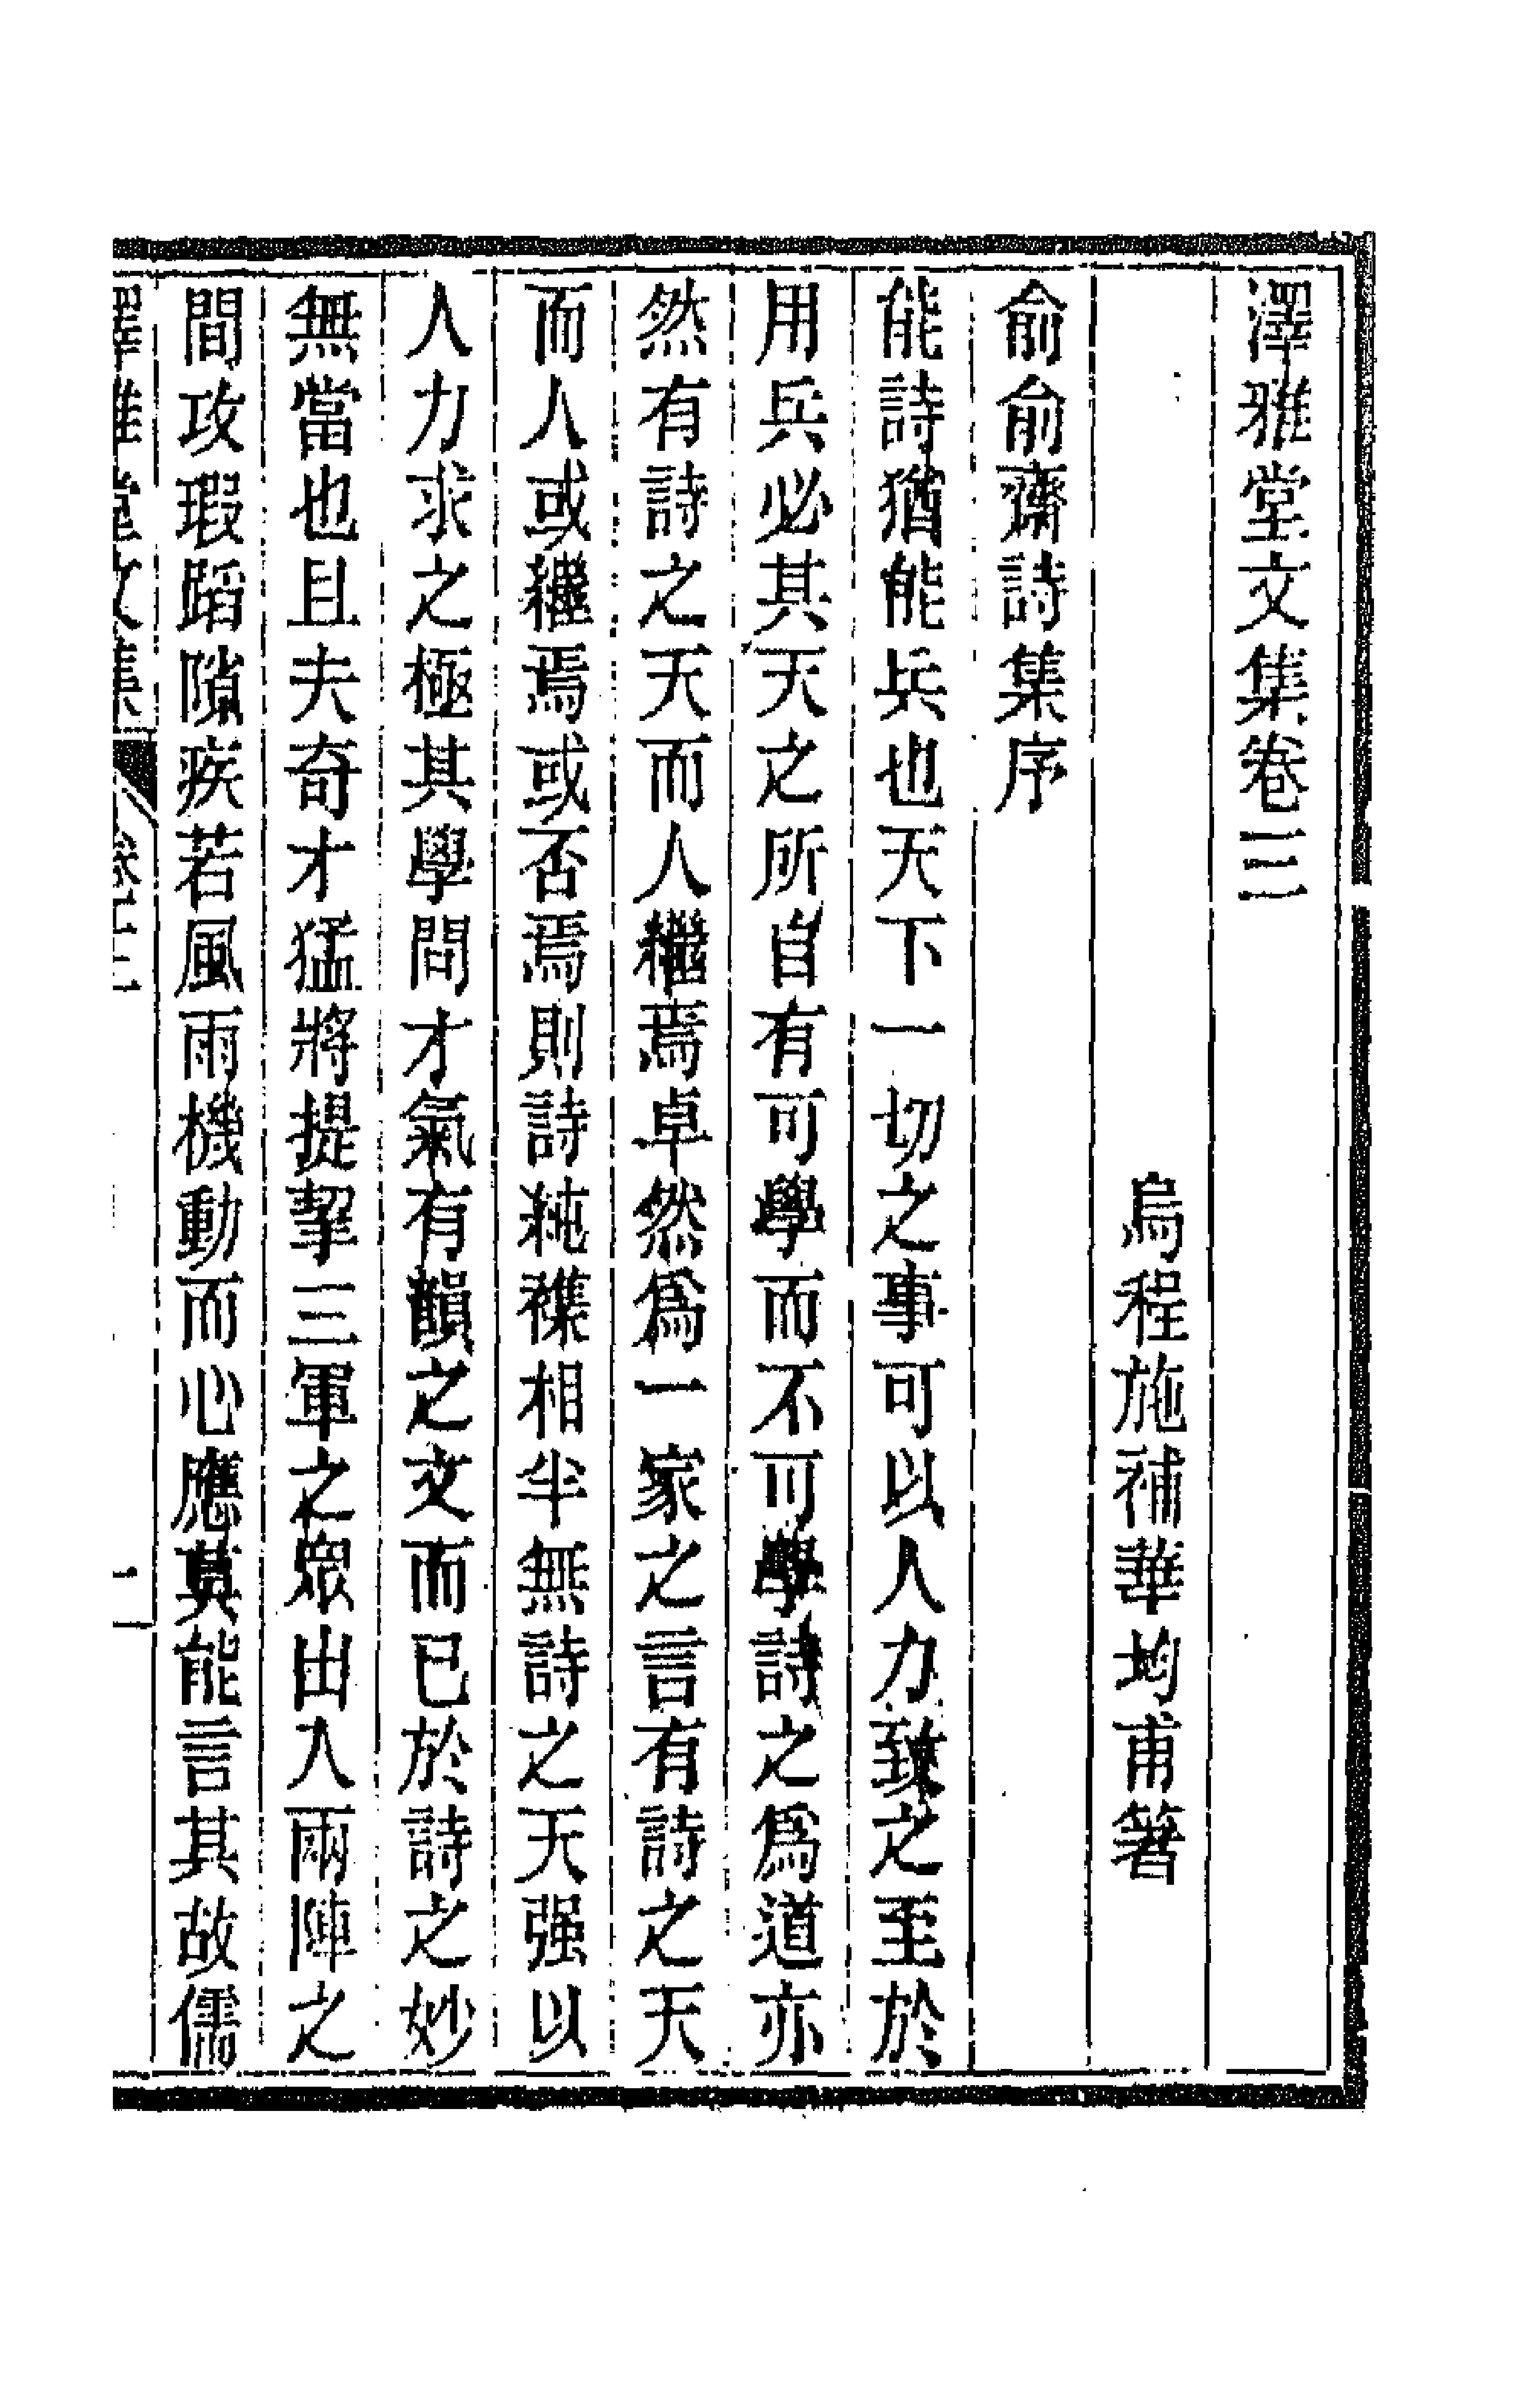 澤雅堂文集卷三
烏程施補華均甫箸
俞俞齋詩集序
能詩猶能兵也天下一切之事可以人力致之至於
用兵必其天之所自有可學而不可學詩之爲道亦
然有詩之天而人繼焉卓然爲一家之言有詩之天
而人或繼焉或否焉則詩純襍相半無詩之天强以
人力求之極其學問才氣有韻之文而已於詩之妙
無當也且夫奇才猛將提挈三軍之眾出入兩陣之
間攻瑕蹈隙疾若風雨機動而心應莫能言其故儒
澤雅堂文集 卷三 一